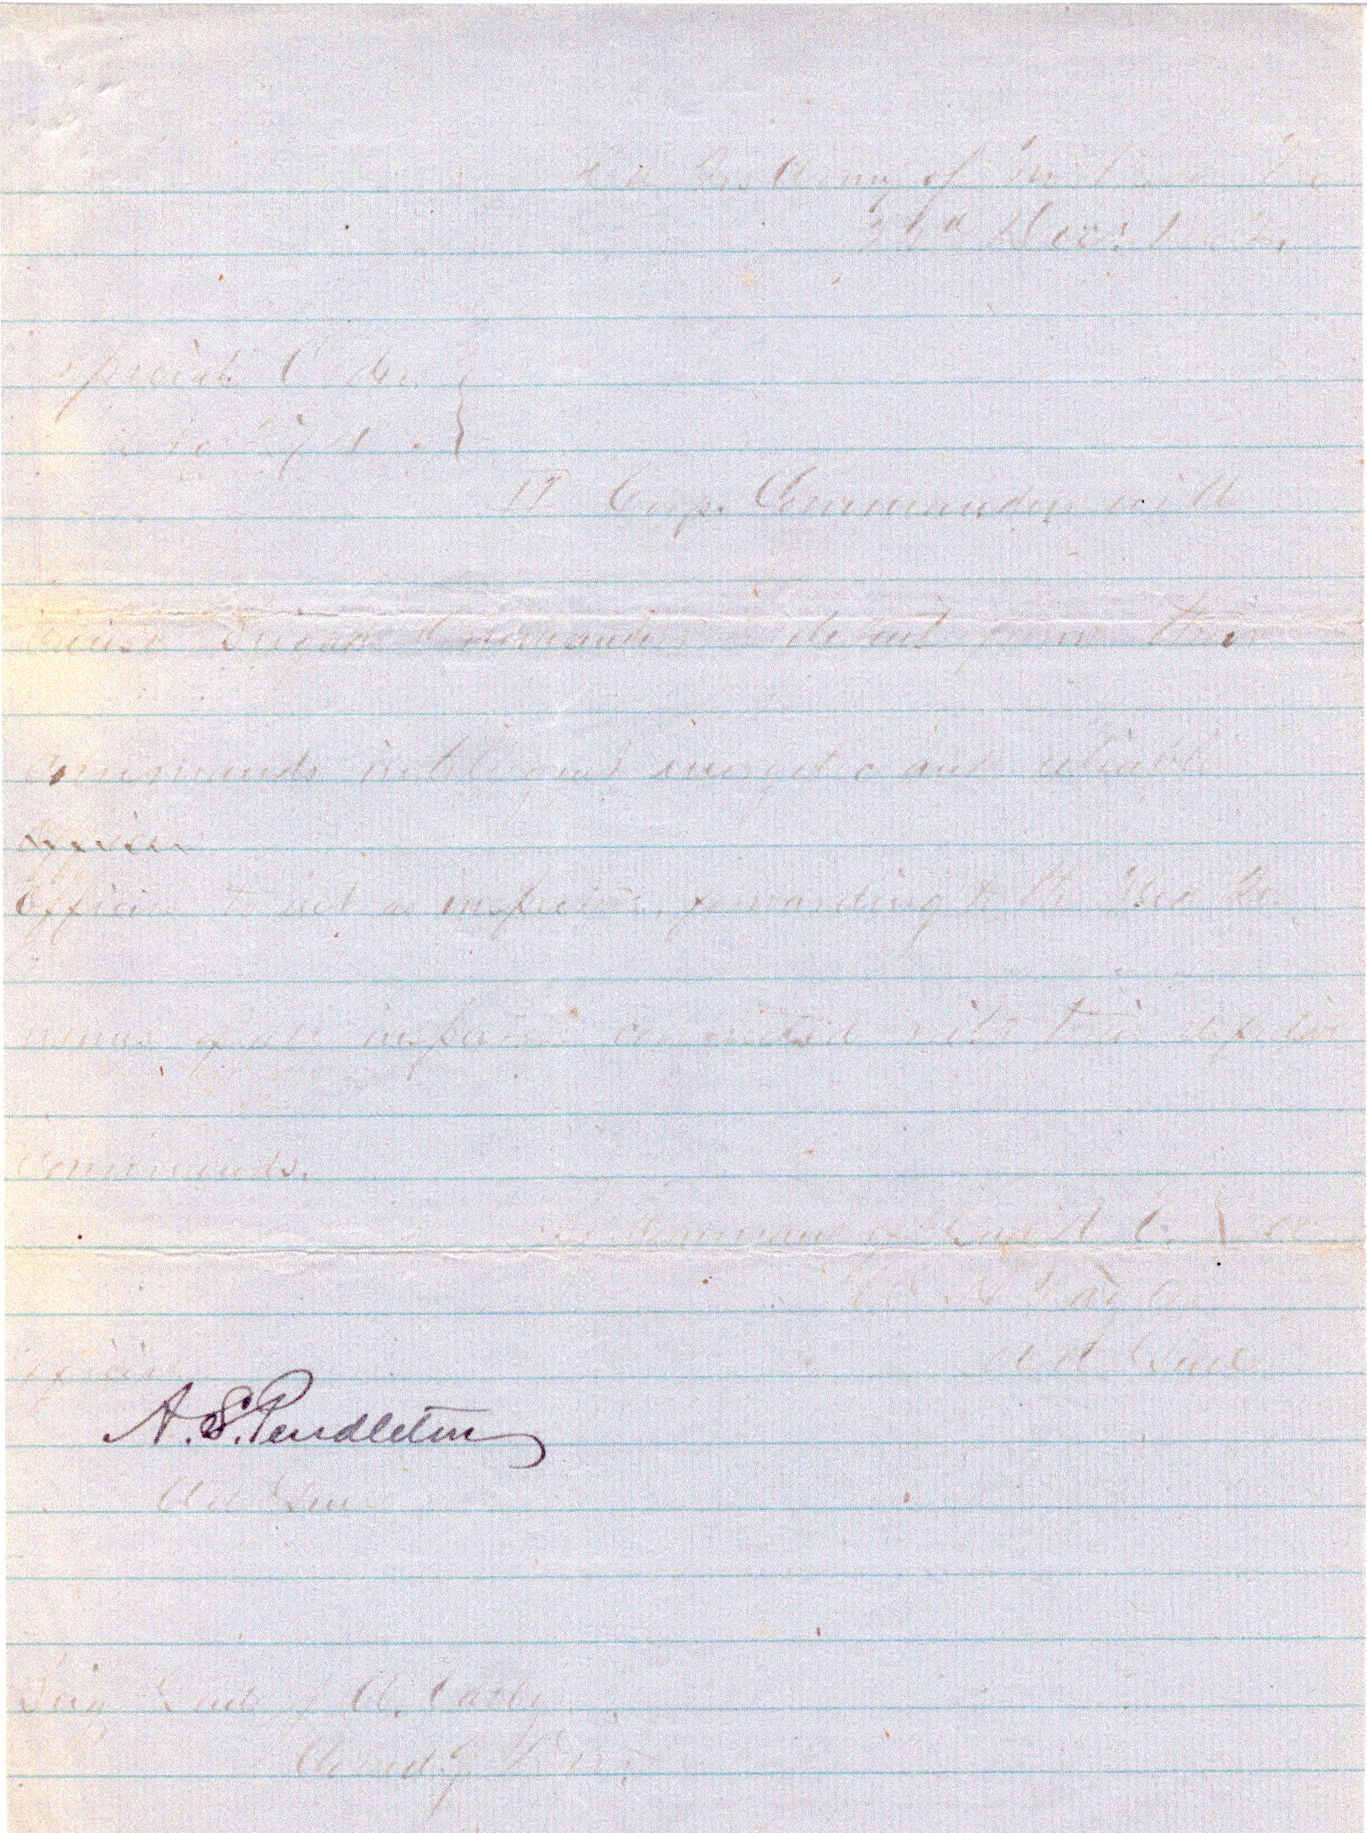 Army of
Dec. 1862.
Special Orders
No 274
II Corps Commanders will
cause Brigade Commanders to detail from their
commands intelligent energetic and reliable
Officers to act as inspectors, forwarding to
names of all inspectors connected with their respective
commands.
By Command of Genl R. E. Lee
A A Genl
Official
A. S. Pendleton
A A Genl
Brig Genl J A. Early
Comdg Divn.